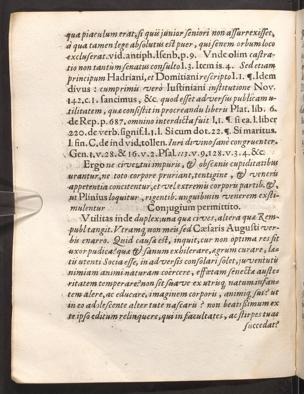 qua piaculum erat, si quis junior seniori non assurrexisset,
à qua tamen lege absolutus est puer, qui senem orbum loco
excluserat. vid. antiph. l. senb. p. 9. Vnde olim castra-
tio non tantùm senatus consulto l. 3. Item is. 4. Sed etiam
principum Hadriani, et Domitiani rescripto l. 1. ¶. Idem
divus: cumprimis verò Iustiniani institutione Nov.
142. c. 1. sancimus, &c. quod esset adversus publicam u-
tilitatem, quæ consistit in procreandu liberis Plat. lib. 6.
de Rep. p. 687. omnino interdicta fuit l. 1. ¶. si ea. l. liber
220. de verb. signif. l. 1. l. Si cum dot. 22. ¶. Si maritus.
l. fin. C, de ind vid. tollen. Iuri de vino sanè congruenter.
Gen. 1. v. 28. & 16. v. 2. Psal. 113. v. 9. 128. v. 3. 4. &c.
Ergo ne cives tui impuris, & obscænis cupiditatibus
urantur, ne toto corpore pruriant, tentigine, & veneris
appetentiâ concitentur, et vel extremis corporis partib. &,
ut Plinius loquitur, rigentib. unguibus in venerem exsti-
mulentur Conjugium permittito.
Vtilitas inde duplex; una quæ cives, altera quæ Rem-
publ. tangit. Vtramq; non meis sed Cæsaris Augusti ver-
bis enarro. Quid causæ est, inquit, cur non optima res sit
uxor pudica? quæ & sanum exhilerare, ægrum curare, læ-
tiis utens socia esse, in adversis consolari solet, juventutis
nimiam animi naturam coërcere, effœtam senectæ auste-
ritatem temperare? non sit suave ex utriusq; natum infan-
tem alere, ac educare, imaginem corporis, animiq; sui? ut
in eo adolescente alter tute nascaris? non beatissimum ex
te ipso editum relinquere, qui in facultates, ac stirpes tuas
succedat?